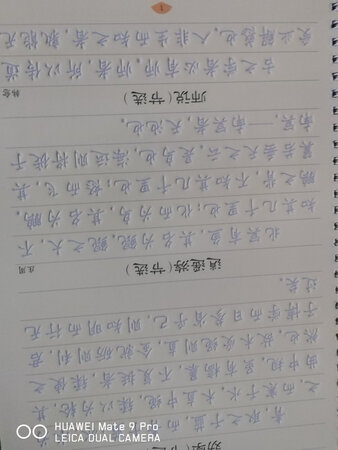 青,取之于蓝,而
之,而寒于水。木直中绳,輮以为轮,其
曲中规。虽有槁暴,不复挺者,輮使之
然也。故木受绳则直,金就砺则利,君
子博学而日参省乎己,则知明而行无
过矣。
逍遥游(节选)
庄周
北冥有鱼,其名为鲲。鲲之大,不
知其几千里也;化而为鸟,其名为鹏。
鹏之背,不知其几千里也;怒而飞,其
翼若垂天之云。是鸟也,海运则将徙于
南冥。——南冥者,天池也。
师说(节选)
韩愈
古之学者必有师。师者,所以传道
受业解惑也。人非生而知之者,孰能无
HUAWEI Mate 9 Pro
LEICA DUAL CAMERA